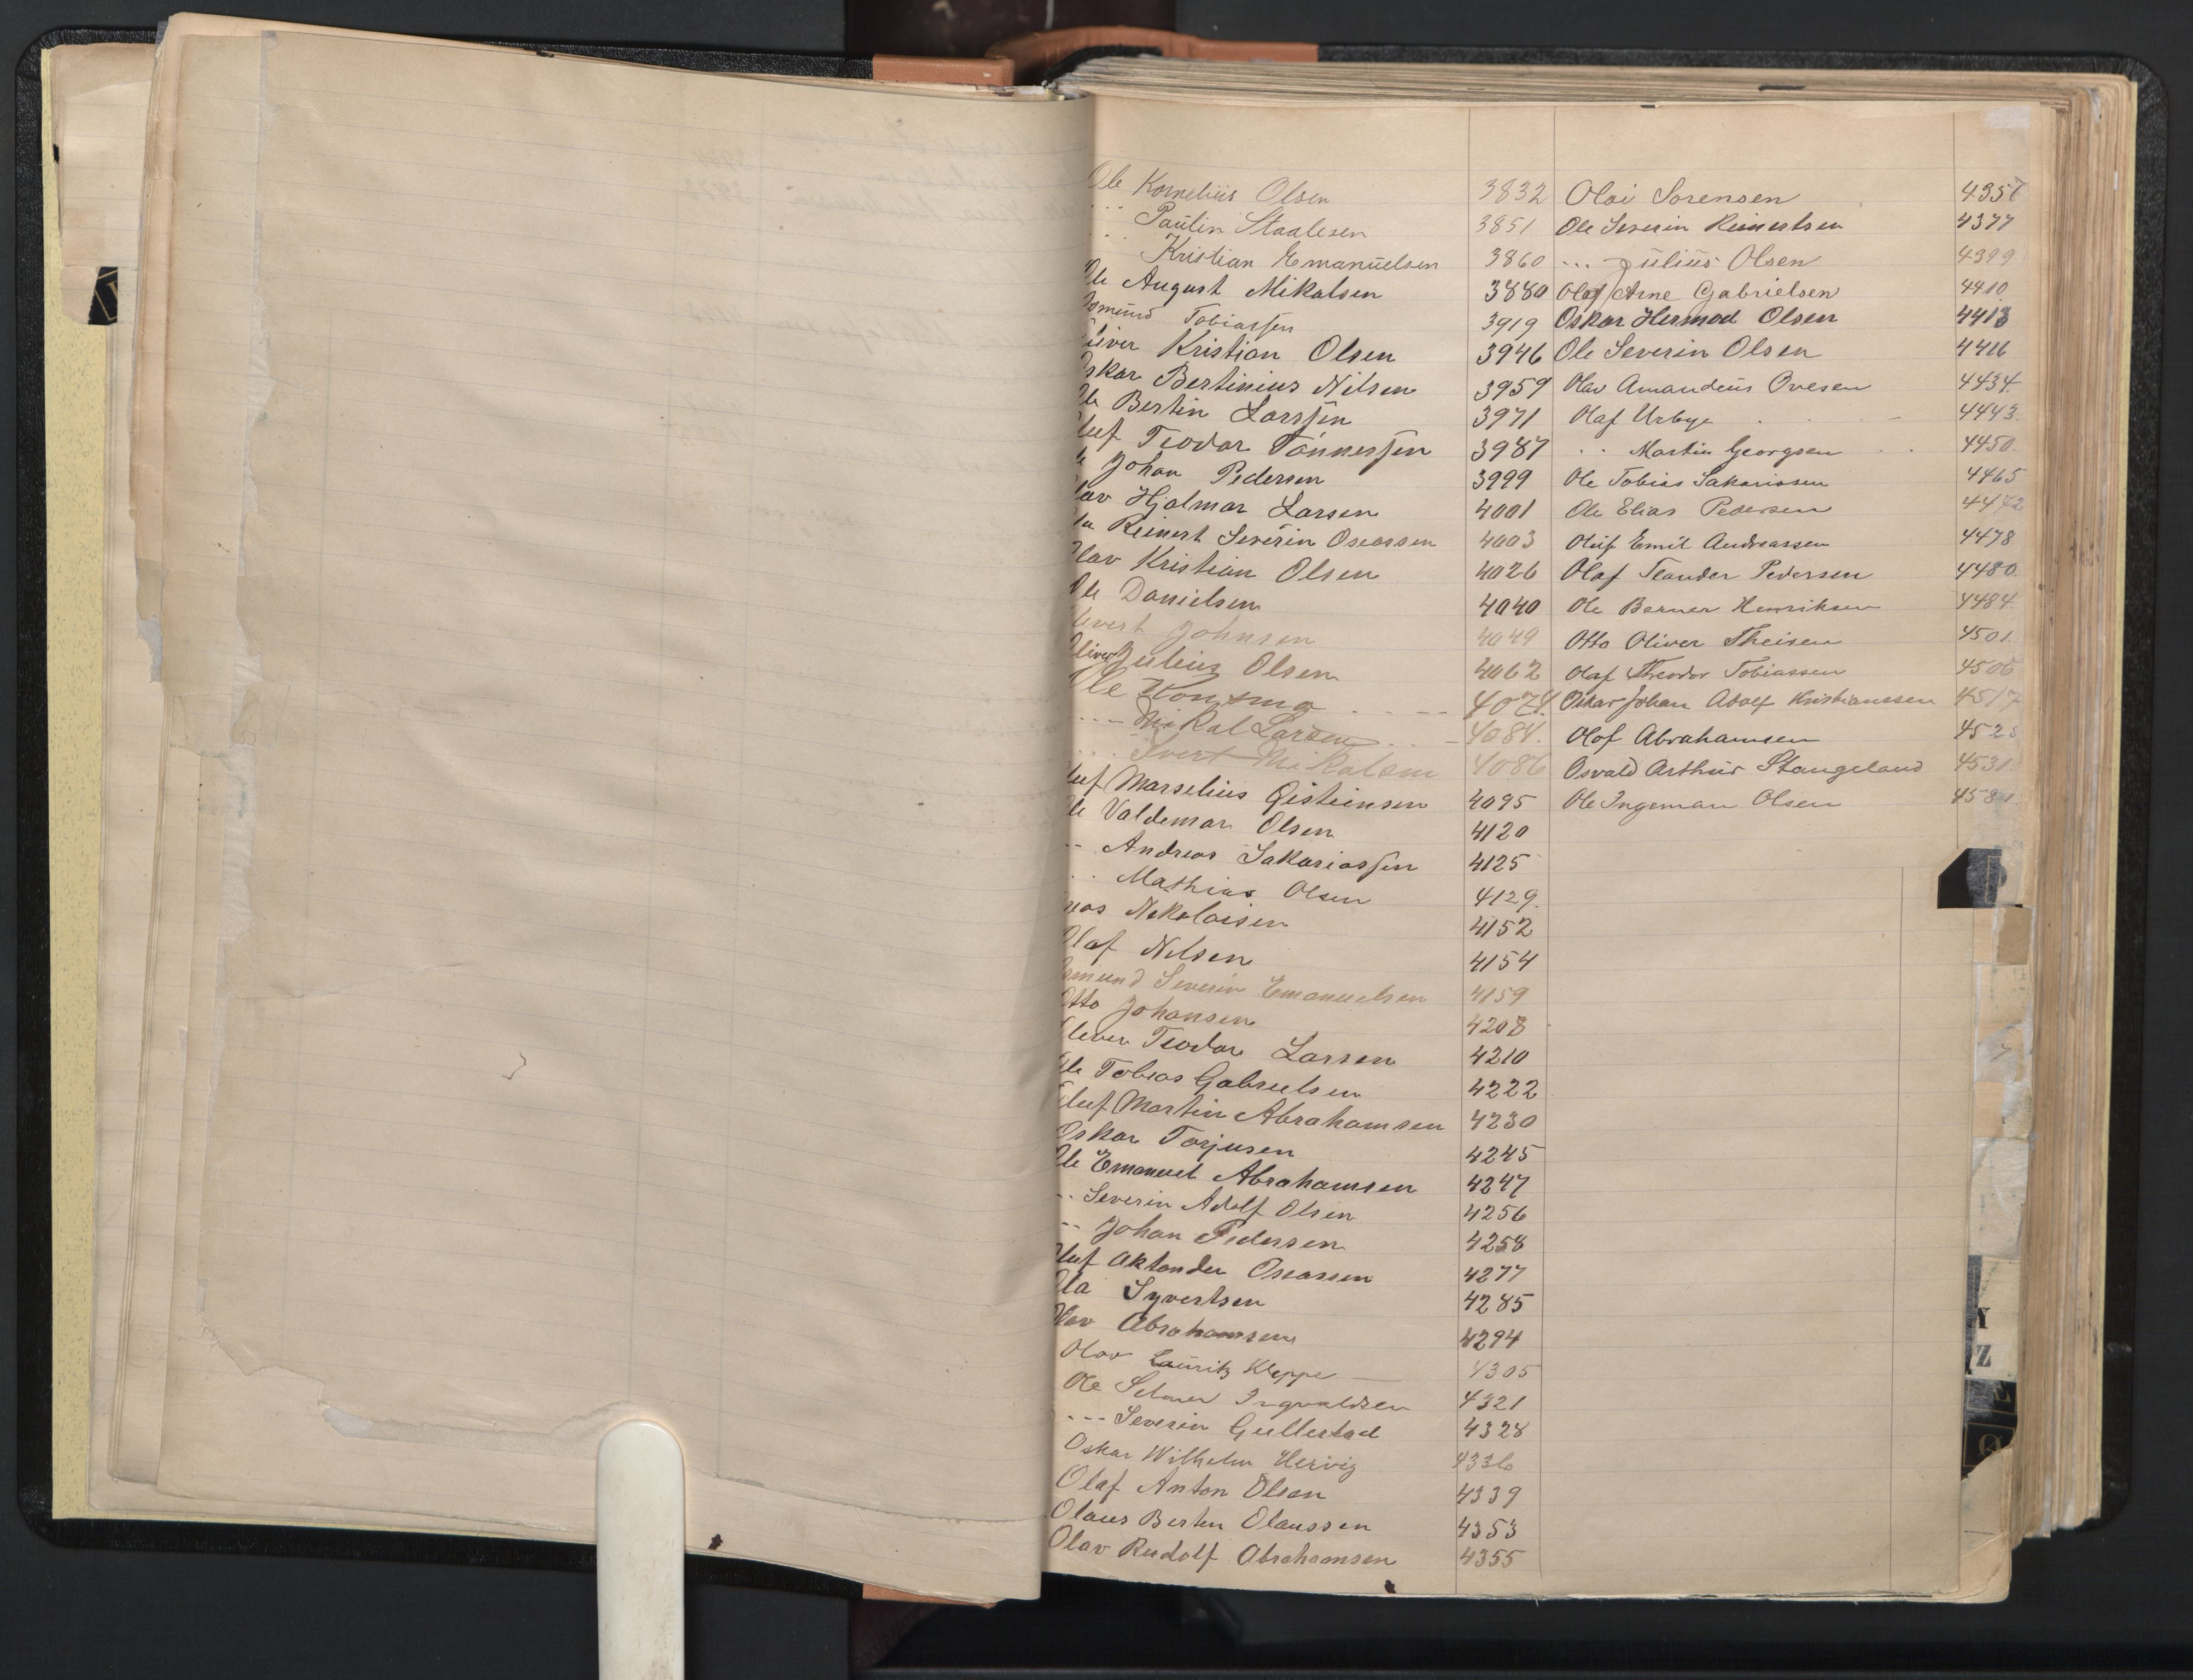 Ole Kornelius Olsen 3832
... Paulin Staalesen 3851
... Kristian Emanuelsen 3860
Ole August Mikalsen 3880
Osmund Tobiassen 3919
Oliver Kristian Olsen 3946
Oskar Bertinius Nilsen 3959
Ole Bertin Larssen 3971
Oluf Teodor Tönnessen 3987
Ole Johan Pedersen 3999
Olav Hjalmar Larsen 4001
Reinert Severin Oscarsen 4003
Olav Kristian Olsen 4026
Ole Danielsen 4040
Johnsen 4049
Oliver Julius Olsen 4062
Ole 4074
---- Mikal Larsen 4084.
.... Ivert Mikalsen 4086
Oluf Marselius Gisteinsen 4095
Ole Valdemar Olsen 4120
-- Andreas Sakariassen 4125
.. Mathias Olsen 4129.
Nikolaisen 4152
Olaf Nilsen 4154
Osmund Severin Emanuelsen 4159
Otto Johansen 4208
Oliver Teodor Larsen 4210
Ole Tobias Gabrielsen 4222
Oluf Martin Abrahamsen 4230
Oskar Torjusen 4245
Ole Emanuel Abrahamsen 4247
-- Severin Adolf Olsen 4256
-- Johan Pedersen 4258
Oluf Aktander Oscarsen 4277
Ola Syvertsen 4285
Olav Abrahamsen 4294
Olav Lauritz Kleppe — 4305
Ole Selmer Ingvaldsen 4321
---- Severin Gullestad 4328
Oskar Wilhelm Hervig 4336
Olaf Anton Olsen 4339
Olaus Berten Olaussen 4353
Olav Rudolf Abrahamsen 4355
Olai Sorensen
Ole Severin Reinertsen 4377
... Julius Olsen 4399
Olaf Arne Gabrielsen 4410
Oskar Hermod Olsen 4413
Ole Severin Olsen 4416
Olav Amandeus Ovesen 4434.
Olaf Urbye 4443.
.. Martin Georgsen 4450.
Ole Tobias Sakariasen 4465
Ole Elias Pedersen 4472
Oluf Emil Andreassen 4478
Olaf Teander Pedersen 4480.
Ole Berner Henriksen 4484.
Otto Oliver Theisen 4501.
Olaf Theodor Tobiassen 4506
Oskar Johan Adolf Kristianssen 4517
Olof Abrahamsen
Osvald Arthur Stangeland 4531
Ole Ingeman Olsen
Y
Z
Æ
Ø